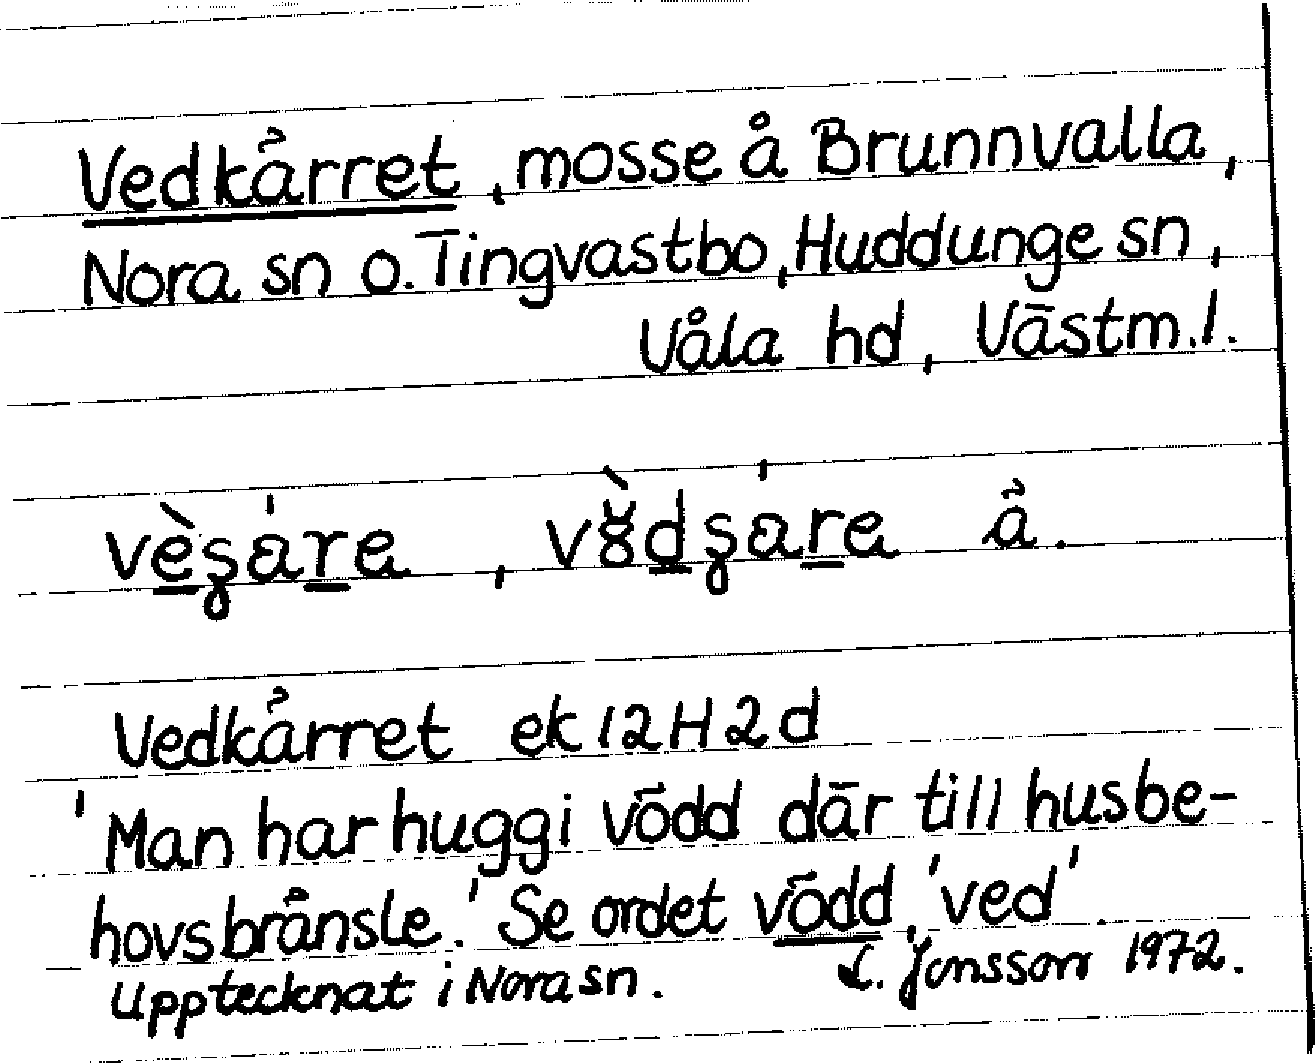 Vedkärret, mosse å Brunnvalla,
Nora sn o. Tingvastbo, Huddunge sn,
Våla hd, Västm. l.
ä.
Vedkärret ek 12H2d
'Man har huggi vödd där till husbe-
hovsbränsle.' Se ordet vödd, 'ved'.
Upptecknat i Nora sn. Jonsson 1972.